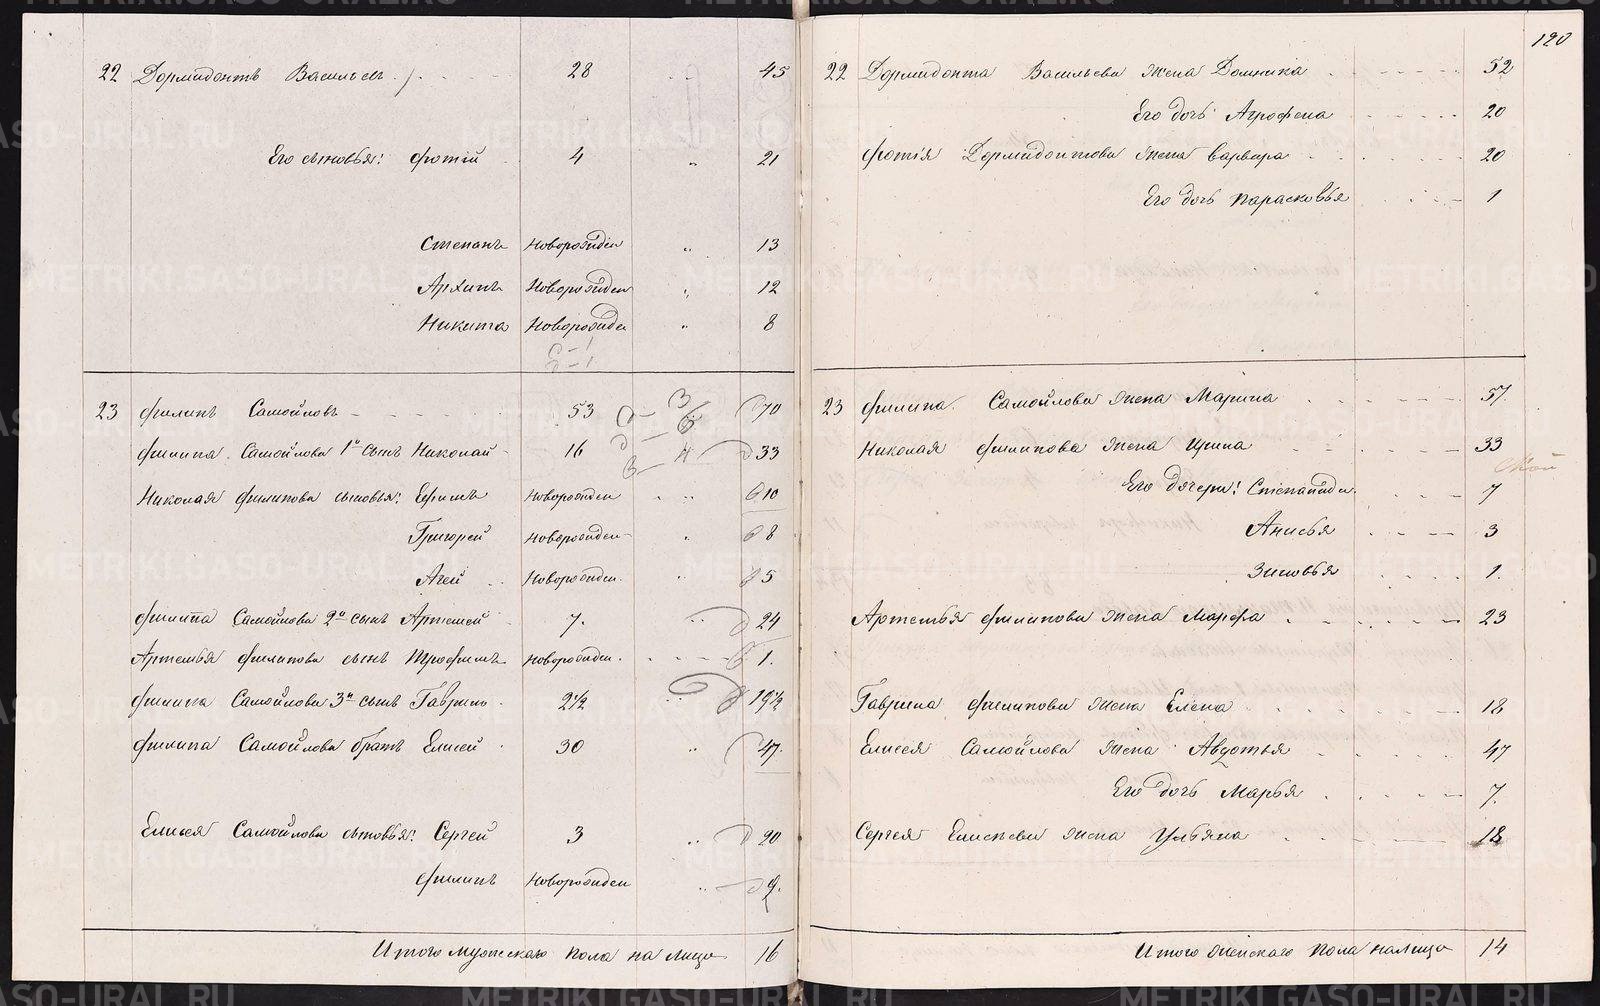 120
22 Дормидонтъ Васильевъ 28 45
Его сыновья: Фотій 4 „ 21
Степанъ новорожден „ 13
Архипъ Новорожден „ 12
Никита Новорожде „ 8
23 Филипъ Самойловъ 53 70
Филипа Самойлова 1й сынъ Николай 16 33
Николая Филипова сыновья: Ефимъ новорожден „ 10
Григорей новорожден „ 8
Агей Новорожден „ 5
Филипа Самойлова 2й сынъ Артемей 7. „ 24
Артемья Филипова сынъ Трофимъ новорожден. 1.
Филипа Самойлова 3й сынъ Гаврило 2½ „ 19½
Филипа Самойлова братъ Елисей 30 „ 47.
Елисея Самойлова сыновья: Сергей 3 „ 20
Филипъ новорожден „ 2.
Итого мужескаго пола на лицо 16
22 Дормидонта Васильева жена Домника 52
Его дочь Агрофена 20
Фотія Дормидонтова жена Варвара 20
Его дочь Парасковья 1
23 Филипа Самойлова жена Марина 57.
Николая Филипова жена Ирина 33
Его дочери: Степанида 7
Анисья 3
Зиновья 1.
Артемья Филипова жена Марфа 23
Гаврила Филипова жена Елена 18
Елисея Самойлова жена Авдотья 47
Его дочь Марья 7.
Сергея Елисѣева жена Ульяна 18
Итого женскаго пола налицо 14
METRIKI.GASO-URAL.RU